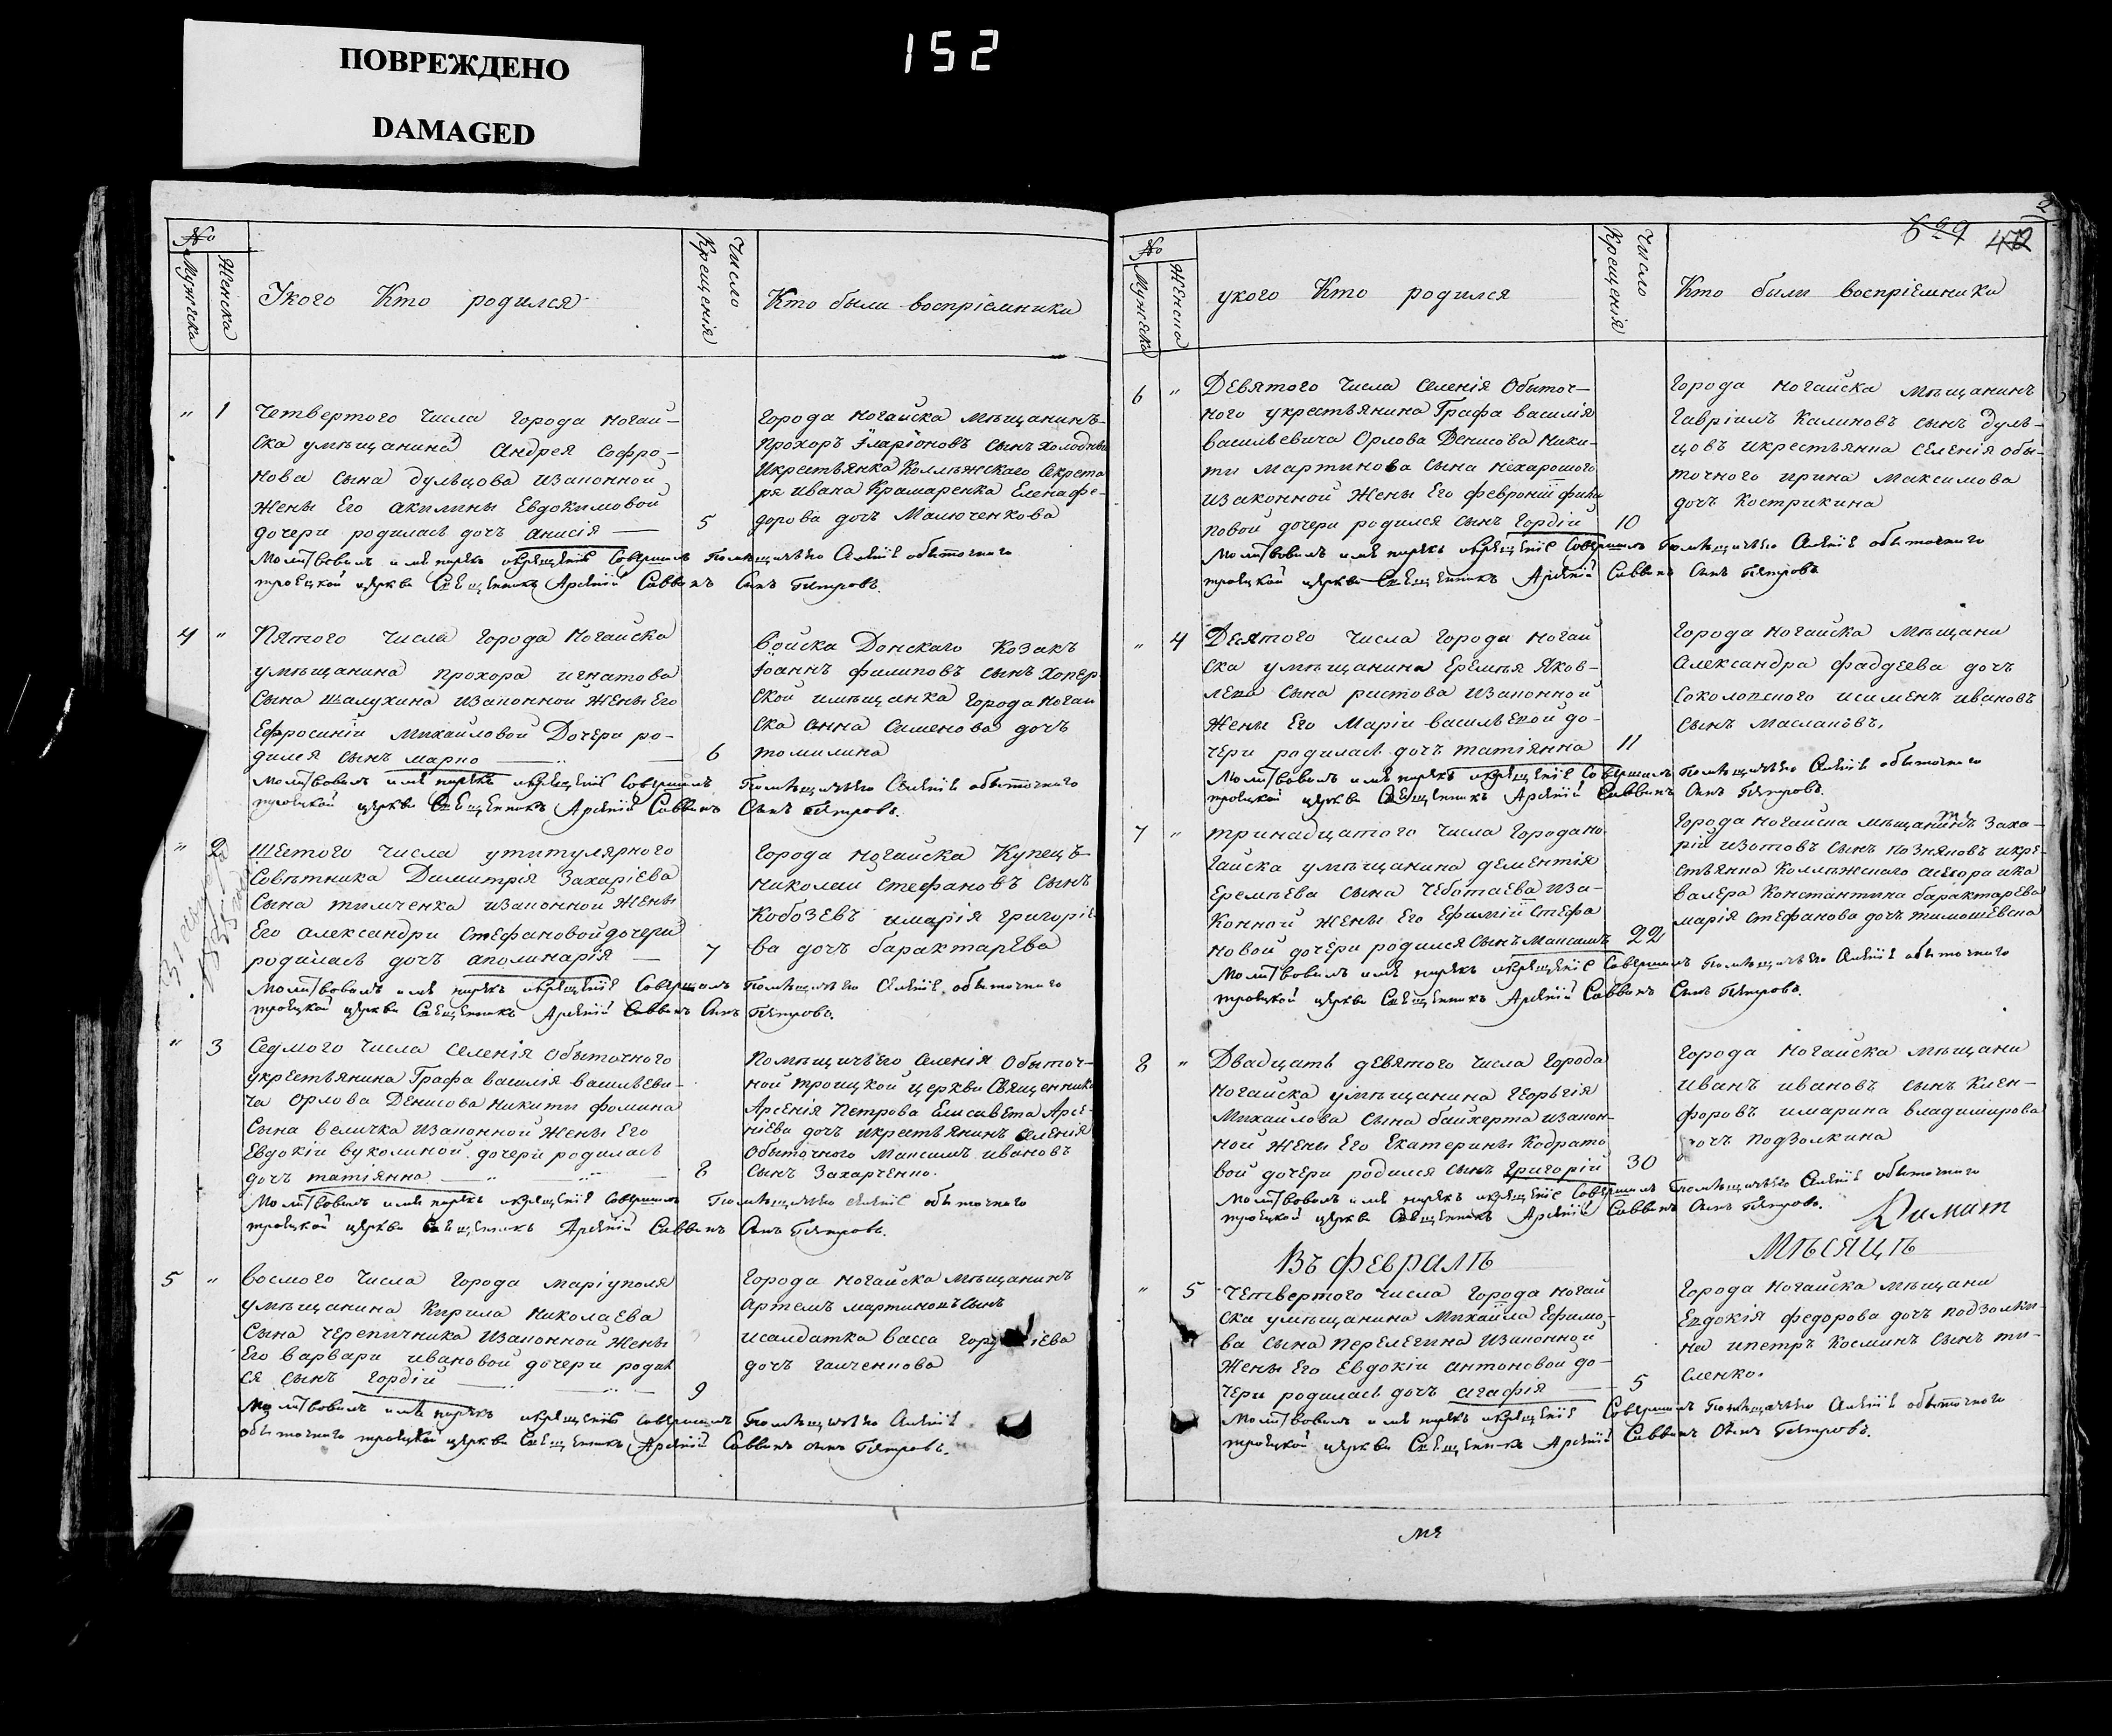 ПОВРЕЖДЕНО
DAMAGED
152
№
Мужеска
Женска
Укого Кто родился
Число Крещенія
Кто были воспріемники
" 1
Четвертого Числа Города Ногай-
ска умѣщанина Андрея Софро-
нова сына Дульцова изаконной
жены Его Акилины Евдокимовой
дочери родилась дочь Анисія
5
Города Ногайска Мѣщанинъ
Прохоръ Иларіоновъ сынъ
икрестьянка Коллежскаго Секрета
ря Ивана Крамаренка Елена Фе-
дорова дочь Малюченкова
Молитвовалъ имя нарекъ икрещеніе Совершалъ Помѣщичьего Селенія обыточного
троецкой церкви Священникъ Арсеній Саввинъ Сынъ Петровъ.
4 "
Пятого Числа Города Ногайска
умѣщанина Прохора Игнатова
сына Шалухина изаконной жены Его
Ефросиніи Михайловой Дочери ро-
дился сынъ Марко
6
Войска Донскаго Козакъ
Іоаннъ Филиповъ сынъ Хопер
ской имѣщанка Города Ногай
ска Анна Семенова дочь
Томилина
Молитвовалъ имя нарекъ икрещеніе Совершалъ Помѣщичьего Селенія обыточного
троецкой церкви Священникъ Арсеній Саввинъ Сынъ Петровъ.
" 2
Шестого Числа утитулярного
Совѣтника Димитрія Захаріева
Сына Тимченка изаконной жены
Его Александри Стефановой дочери
родилась дочь Аполинарія
7
Города Ногайска Купецъ
Николай Стефановъ сынъ
Кобозевъ имарія Григоріе-
ва дочь Барактарева
Молитвовалъ имя нарекъ икрещеніе Совершалъ Помѣщичьего Селенія обыточного
троецкой церкви Священникъ Арсеній Саввинъ Сынъ Петровъ.
" 3
Седмого Числа селенія Обыточного
укрестьянина Графа Василія Васильеви-
ча Орлова Денисова Никити Фомина
Сына Величка изаконной жены Его
Евдокіи Вуколиной дочери родилась
дочь Татіянна
8
Помѣщичьего селенія Обыточ-
ной Троицкой церкви Священника
Арсенія Петрова Елисавета Арсе-
ніева дочь икрестьянинъ селенія
Обыточного Максимъ Ивановъ
сынъ Захарченко.
Молитвовалъ имя нарекъ икрещеніе Совершалъ Помѣщичьего Селенія обыточного
троецкой церкви Священникъ Арсеній Саввинъ Сынъ Петровъ.
5 "
Восмого Числа Города Маріуполя
умѣщанина Кирила Николаева
Сына Черепичника изаконной жены
Его Варвари Ивановой дочери родил
ся сынъ Гордій
9
Города Ногайска Мѣщанинъ
Артемъ Мартиновъ сынъ
исалдатка Васса
дочь Ганченкова
Молитвовалъ имя нарекъ икрещеніе Совершалъ Помѣщичьего Селенія
обыточного троецкой церкви Священникъ Арсеній Саввинъ Сынъ Петровъ.
№
Мужеска
Женска
укого Кто родился
Число Крещенія
Кто были воспріемники
6 "
Девятого Числа селенія Обыточ-
ного укрестьянина Графа Василія
Васильевича Орлова Денисова Ники-
ти Мартинова сына Нехарошого
изаконной жены Его Февроніи
повой дочери родился сынъ Гордій
10
Города Ногайска Мѣщанинъ
Гавріилъ Калиновъ сынъ Дуль-
цовъ икрестьянка селенія Обы-
точного Ирина Максимова
дочь Кострикина
Молитвовалъ имя нарекъ икрещеніе Совершалъ Помѣщичьего Селенія обыточного
троецкой церкви Священникъ Арсеній Саввинъ Сынъ Петровъ
" 4
Десятого Числа Города Ногай
ска умѣщанина Еремѣя Яков-
лева сына Ристова изаконной
жены Его Маріи Васильевой до-
чери родилась дочь Татіянна
11
Города Ногайска Мѣщани
Александра Фаддеева дочь
исименъ Ивановъ
сынъ Маслаковъ.
Молитвовалъ имя нарекъ икрещеніе Совершалъ Помѣщичьего Селенія обыточного
троецкой церкви Священникъ Арсеній Саввинъ Сынъ Петровъ.
7 "
Тринадцатого Числа Города Но
гайска умѣщанина Дементія
Еремѣева сына Чеботаева иза-
конной жены Его Ефиміи Стефа
новой дочери родился сынъ Максимъ
22
Города Ногайска мѣщанинъ Заха-
рій Изотовъ сынъ Позняковъ икре-
стьянка Коллежского асесора ика
валера Константина Барактарева
Марія Стефанова дочь Тимошевска
Молитвовалъ имя нарекъ икрещеніе Совершалъ Помѣщичьего Селенія обыточного
троецкой церкви Священникъ Арсеній Саввинъ Сынъ Петровъ.
8 "
Двадцать девятого Числа Города
Ногайска умѣщанина Георгія
Михайлова сына изакон-
ной жены Его Екатерины Кодрато
вой дочери родился сынъ Григорій
30
Города Ногайска мѣщани
Иванъ Ивановъ сынъ Никен-
форовъ имарина Владимирова
дочь Подзолкина
Молитвовалъ имя нарекъ икрещеніе Совершалъ Помѣщичьего Селенія обыточного
троецкой церкви Священникъ Арсеній Саввинъ Сынъ Петровъ.
Въ февралѣ
Мѣсяцѣ
" 5
Четвертого Числа Города Ногай
ска умѣщанина Михаила Ефимо-
ва сына Перелегина изаконной
жены Его Евдокіи Антоновой до-
чери родилась дочь Агафія
5
Города Ногайска мѣщани
Евдокія Федорова дочь Подзолки-
на ипетръ Косминъ сынъ Ти-
сленко.
Молитвовалъ имя нарекъ икрещеніе Совершалъ Помѣщичьего Селенія обыточного
троецкой церкви Священникъ Арсеній Саввинъ Сынъ Петровъ.